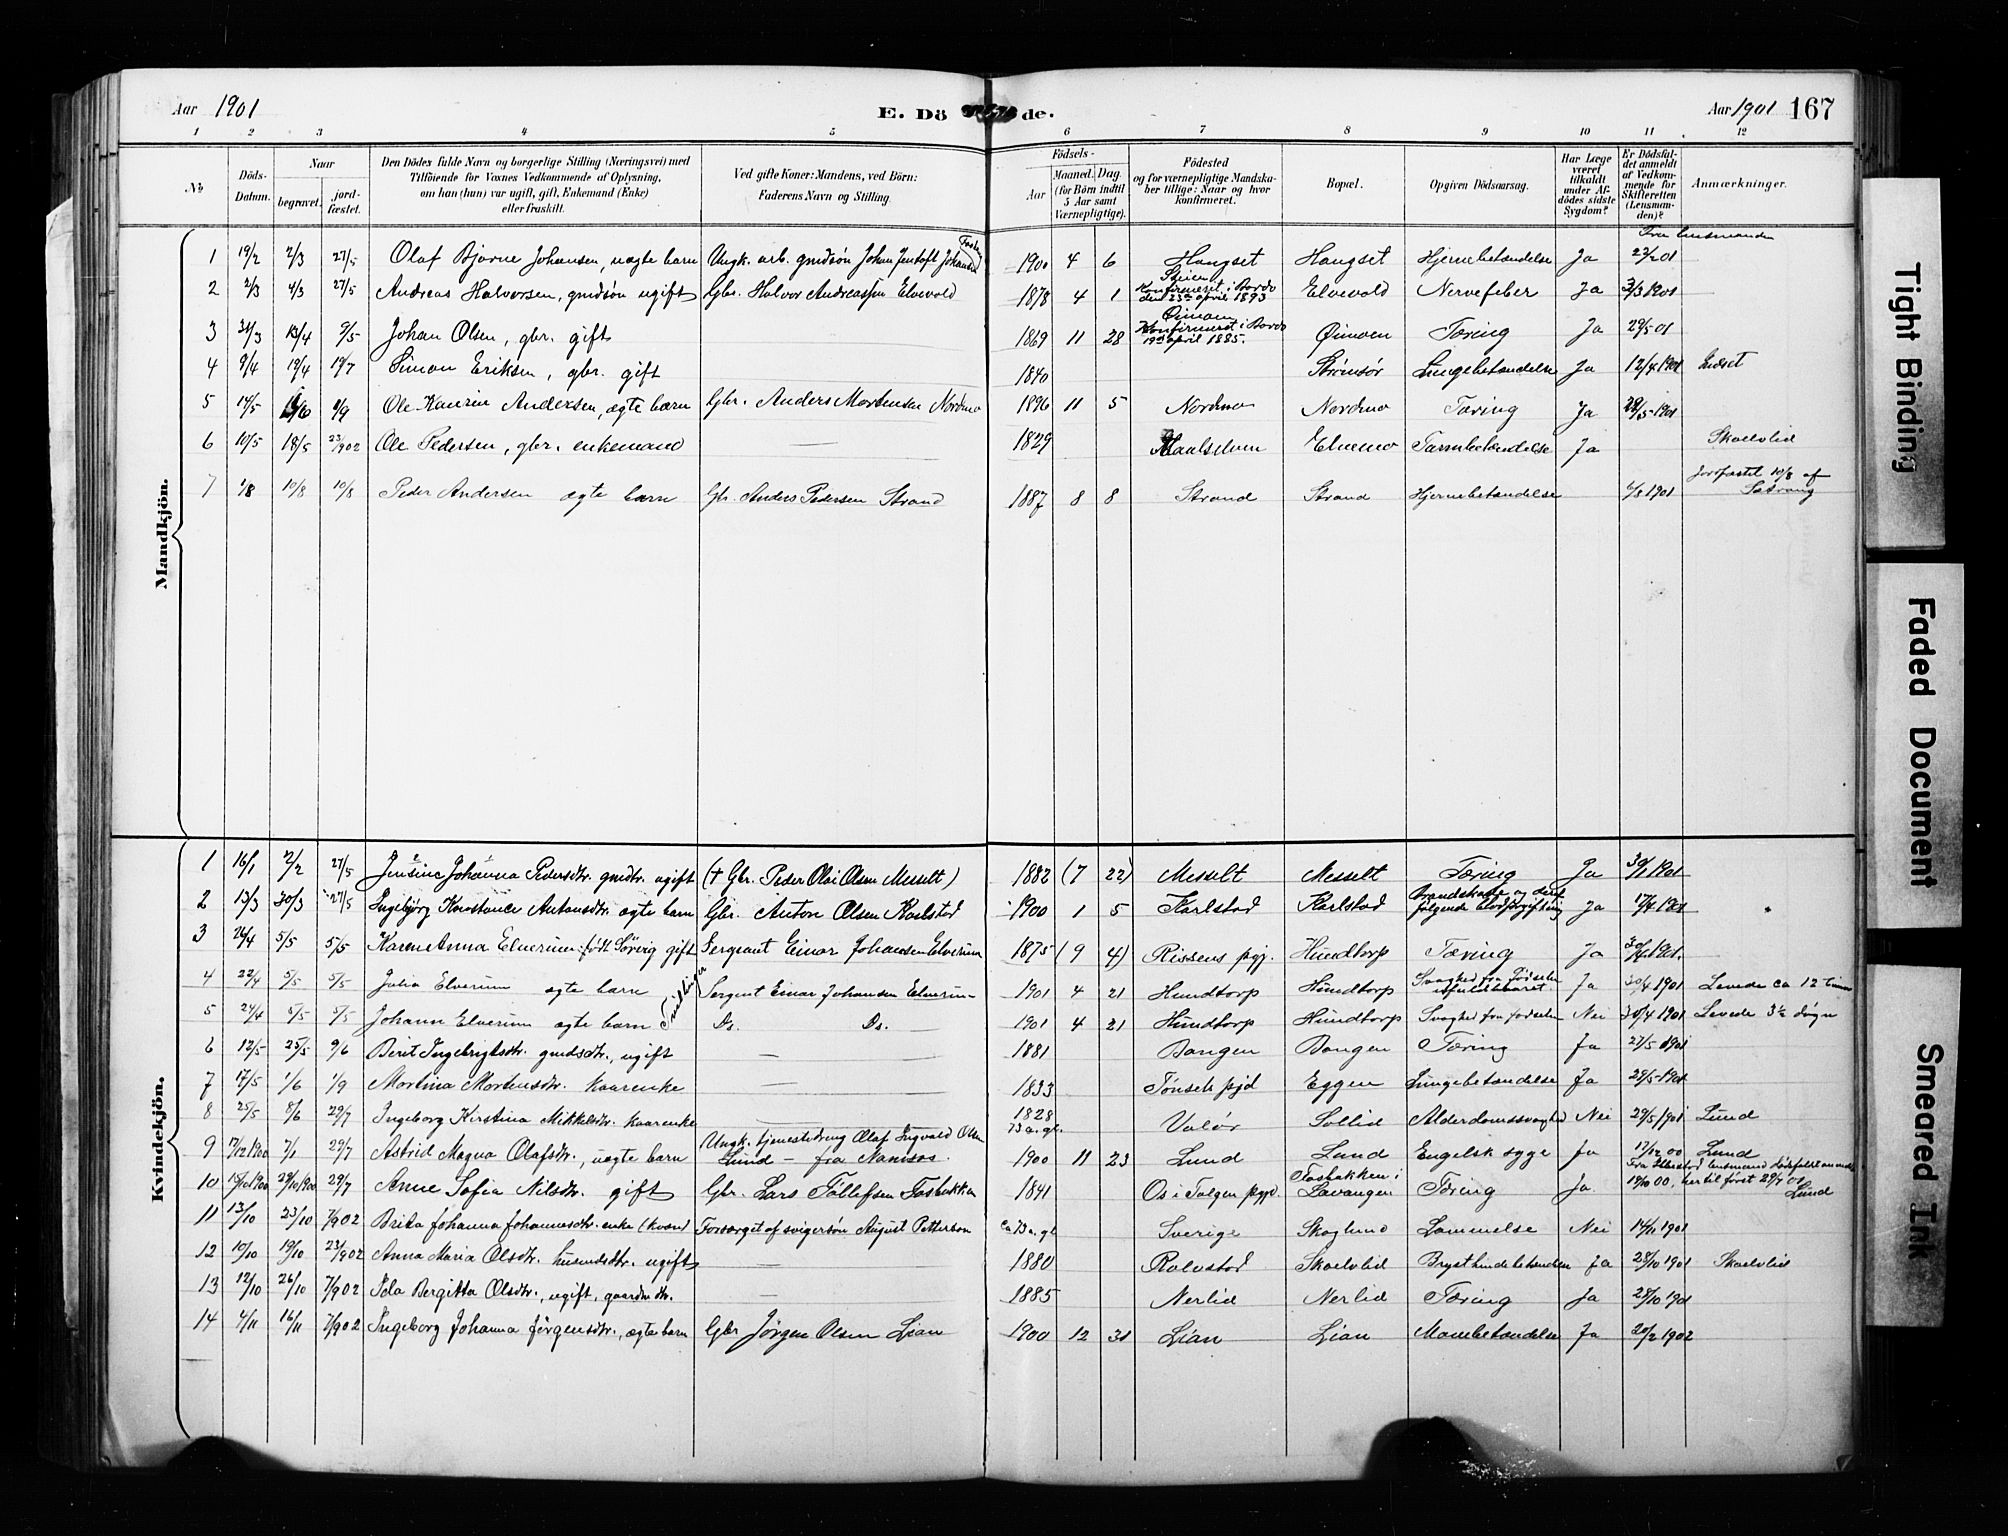 Aar 1901
E. Dö de.
Aar 1901 167
1 2 3 4 5 6 7 8 9 10 11 12
№
Döds-Datum.
Naar
begravet.
jord-fæstet.
Den Dödes fulde Navn og borgerlige Stilling (Næringsvei) med
Tilföiende for Voxnes Vedkommende af Oplysning,
om han (hun) var ugift, gift, Enkemand (Enke)
eller fraskilt.
Ved gifte Koner: Mandens, ved Börn:
Faderens Navn og Stilling.
Födsels-
Aar
Maaned. Dag.
(for Börn indtil
5 Aar samt
Værnepligtige).
Födested
og for værnepligtige Mandska-
ber tillige: Naar og hvor
konfirmeret.
Bopæl.
Opgiven Dödsaarsag.
Har Læge
været
tilkaldt
under Af-
dödes sidste
Sygdom?
Er Dödsfal-
det anmeldt
af Vedkom-
mende for
Skifteretten
(Lensman-
den)?
Anmærkninger.
Mandkjön.
1 19/2 2/3 27/5 Olaf Bjarne Johansen, uægte barn Ungk. arb. gmdsön Johan Jentoft Johansen 1900 4 6 Hangset Hangset Hjernebetændelse Ja 23/2 01 Fra lensmanden
2 2/3 4/3 27/5 Andreas Halvorsen, gmdsön ugift Gbr. Halvor Andreassen Elvevold 1878 4 1 Steien Konfirmeret i Bardo den 23de april 1893 Elvevold Nervefeber Ja 3/3 1901
3 31/3 13/4 9/5 Johan Olsen, gbr. gift 1869 11 28 Öimoen Konfirmeret i Bardo 19de april 1885. Øimoen Tæring Ja 29/5 01
4 9/4 19/4 19/7 Simon Eriksen, gbr. gift 1840 Strömsör Lungebetændelse Ja 12/4 1901
5 14/5 1/6 1/9 Ole Kaurin Andersen, ægte barn Gbr. Anders Mortensen Nordmo 1896 11 5 Nordmo Nordmo Tæring Ja 28/5 1901
6 10/5 18/5 23/902 Ole Pedersen, gbr. enkemand 1829 Maalselven Elvemo Tarmbetændelse Ja Skoelvlid
7 1/8 10/8 10/8 Peder Andersen ægte barn Gbr. Anders Pedersen Strand 1887 8 8 Strand Strand Hjernebetændelse 6/8 1901 Jordfæstet 10/8 af Sætrang
Kvindekjön.
1 16/1 2/2 27/5 Jensine Johanna Pedersdtr. gmdtr. ugift († Gbr. Peder Olai Olsen Messelt) 1882 (7 22) Messelt Messelt Tæring Ja 30/1 1901
2 13/3 30/3 27/5 Ingebjörg Konstance Antonsdtr. ægte barn Gbr. Anton Olsen Karlstad 1900 1 5 Karlstad Karlstad Brandskade og deraf fölgende blodforgiftning Ja 17/4 1901
3 26/4 5/5 5/5 Karen Anna Elverum född Sörvig gift Sergeant Einar Johansen Elverum 1875 (9 4) Rissens pgj. Hundtorp Tæring Ja 30/4 1901.
4 22/4 5/5 5/5 Julia Elverum ægte barn Tvillinger Sergent Einar Johansen Elverum 1901 4 21 Hundtorp Hundtorp Svaghed fra Födselen ufuldbaaret Ja 30/4 1901 Levede ca 12 timer
5 24/4 5/5 5/5 Johann Elverum ægte barn Ds. Ds. 1901 4 21 Hundtorp Hundtorp Svaghed fra födselen Nei 30/4 1901 Levede 3½ dögn
6 12/5 25/5 9/6 Berit Ingebrigtsdtr. gmdsdtr., ugift 1881 Bangen Bongen Tæring Ja 27/5 1901
7 17/5 1/6 1/9 Martina Mortensdtr. kaarenke 1833 Tönset pgjd Eggen Lungebetændelse Ja 28/5 1901
8 25/5 8/6 29/7 Ingeborg Kirstina Mikkelsdtr. kaarenke 1828 73 a. gl. Valör Sollid Alderdomssvaghed Nei 29/5 1901 Lund
9 17/12 1900 7/1 29/7 Astrid Magna Olafsdtr., uægte barn Ungk. tjenestedreng Olaf Ingvald Olsen Lund – fra Namsos 1900 11 23 Lund Lund Engelsk syge Ja 17/12 00 Lund
10 15/10 1900 29/10 1900 29/7 Anne Sofia Nilsdtr. gift Gbr. Lars Tollefsen Fosbakken 1841 Os i Tolgen pgjd. Fosbakken i Lavangen Tæring Ja 19/10 00, her til först 29/7 01 Lund
11 13/10 23/10 7/902 Brita Johanna Johannesdtr. enke (kvæn) Forsörget af svigersön August Petterson ca 73 a. gl Sverige Skoglund Lammelse Nei 14/11 1901
12 10/10 19/10 23/902 Anna Maria Olsdtr. husmdsdtr. ugift 1880 Rolvstad Skoelvlid Brysthindebetændelse Ja 28/10 1901 Skoelvlid
13 12/10 26/10 7/902 Ida Bergitta Olsdtr., ugift, gaardmdtr. 1885 Nerlid Nerlid Tæring Ja 28/10 1901
14 4/11 16/11 7/902 Ingeborg Johanna Jörgensdtr., ægte barn Gbr Jörgen Olsen Lian 1900 12 31 Lian Lian Mavebetændelse Ja 20/2 1902
Tight Binding
Faded Document
Smeared Ink